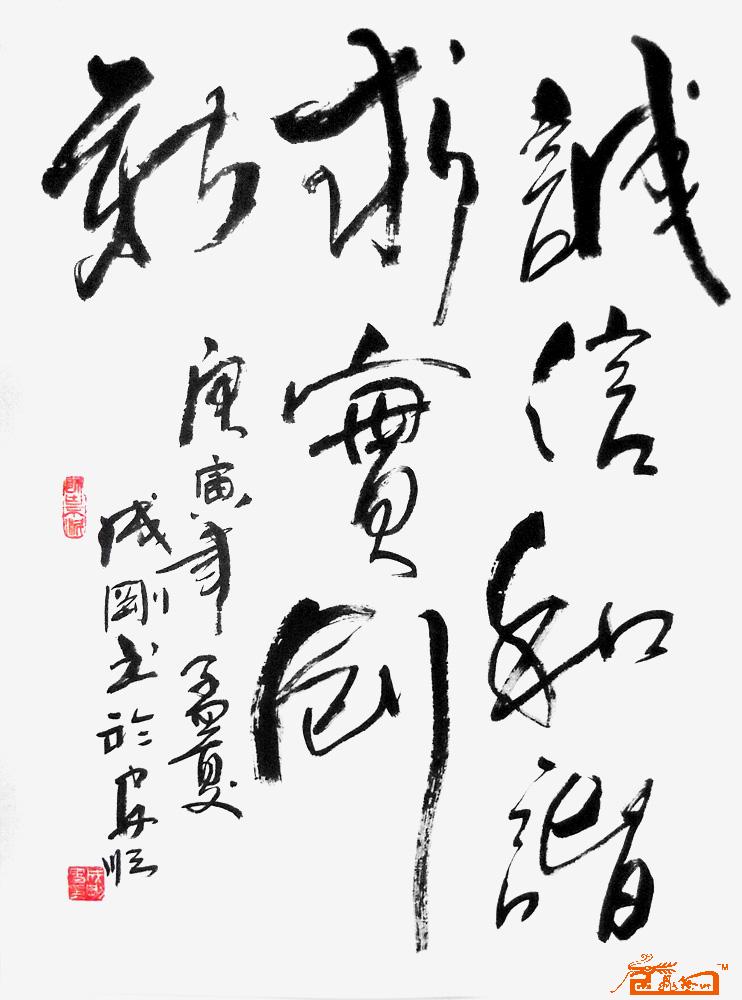 誠信和諧
求實創
新
庚寅年孟夏
成剛書於安順